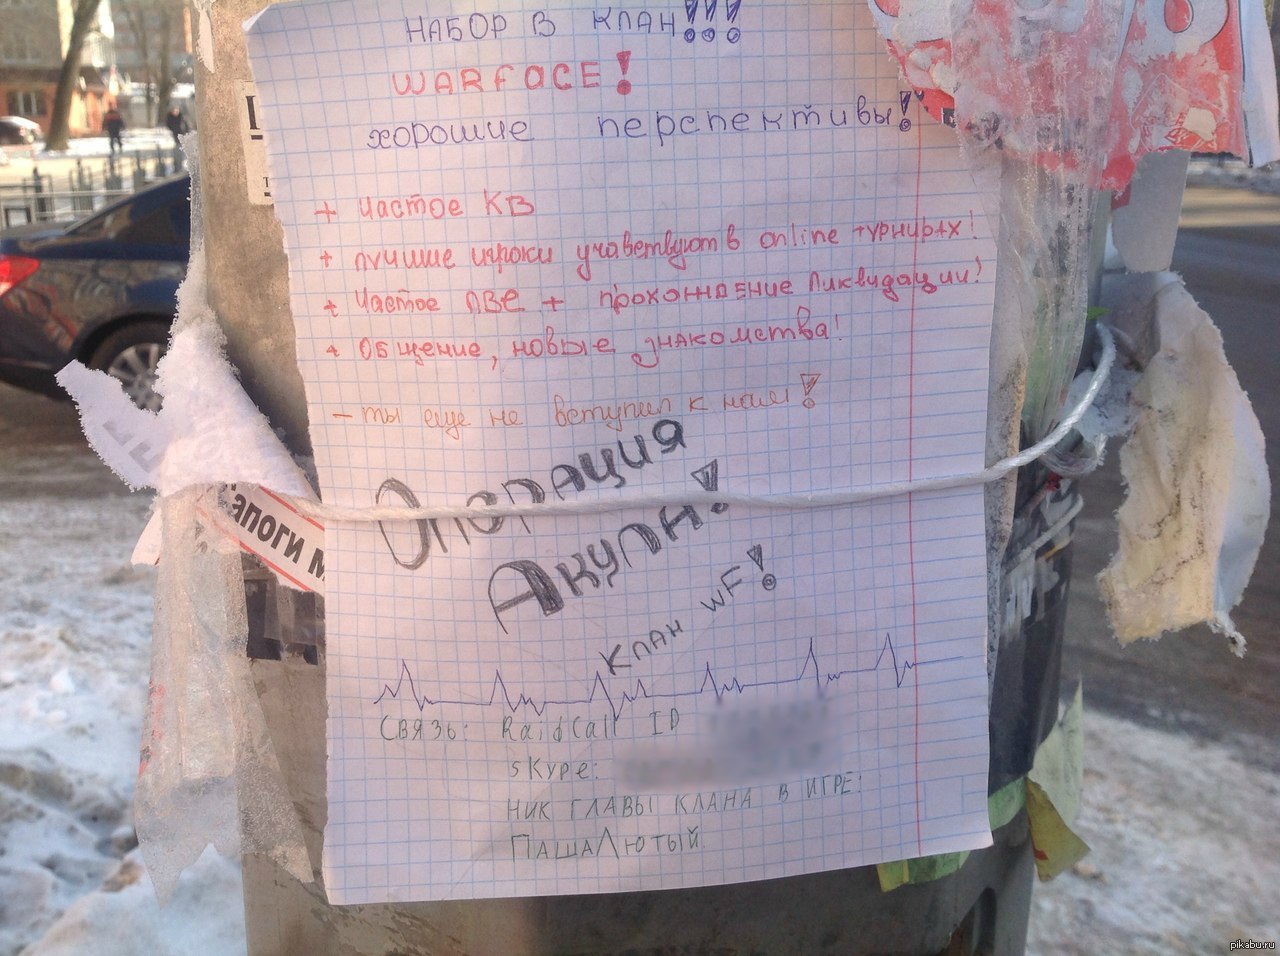 НАБОР В КЛАН!!!
WARFACE!
хорошие перспективы!
+ Частое КВ
+ лучшие игроки учавствуют в online турнирах!
+ Частое ПВЕ + прохождение Ликвидации!
+ Общение, новые знакомства!
- ты еще не вступил к нам!
Операция
Акула!
Клан WF!
Связь: RaidCall ID
skype:
НИК ГЛАВЫ КЛАНА В ИГРЕ:
ПашаЛютый.
апоги М
pikabu.ru